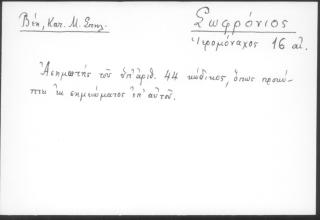 Βέη, Κατ. Μ. Σπηλ.
Σωφρόνιος
Ἱερομόναχος 16 αἰ.
Ἀσημωτής τοῦ ὑπ' ἀριθ. 44 κώδικος, ὅπως προκύ-
πτει ἐκ σημειώματος ἐπ' αὐτοῦ.